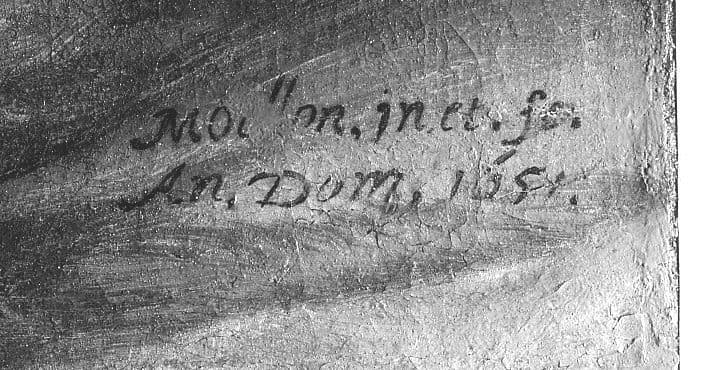 Moillon. in.et. fe.
An. Dom. 1651.